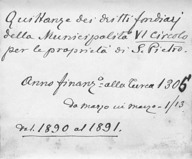 Quittanze dei diritti fondiarj
della Municipalità VI Circolo
per le proprietà di S. Pietro.
Anno finanz.º alla Turca 1306
da marzo in marzo 1/13
del 1890 al 1891.